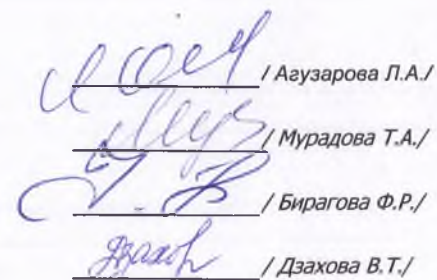 / Агузарова Л.А./
/ Мурадова Т.А./
/ Бирагова Ф.Р./
Дзахов / Дзахова В.Т./